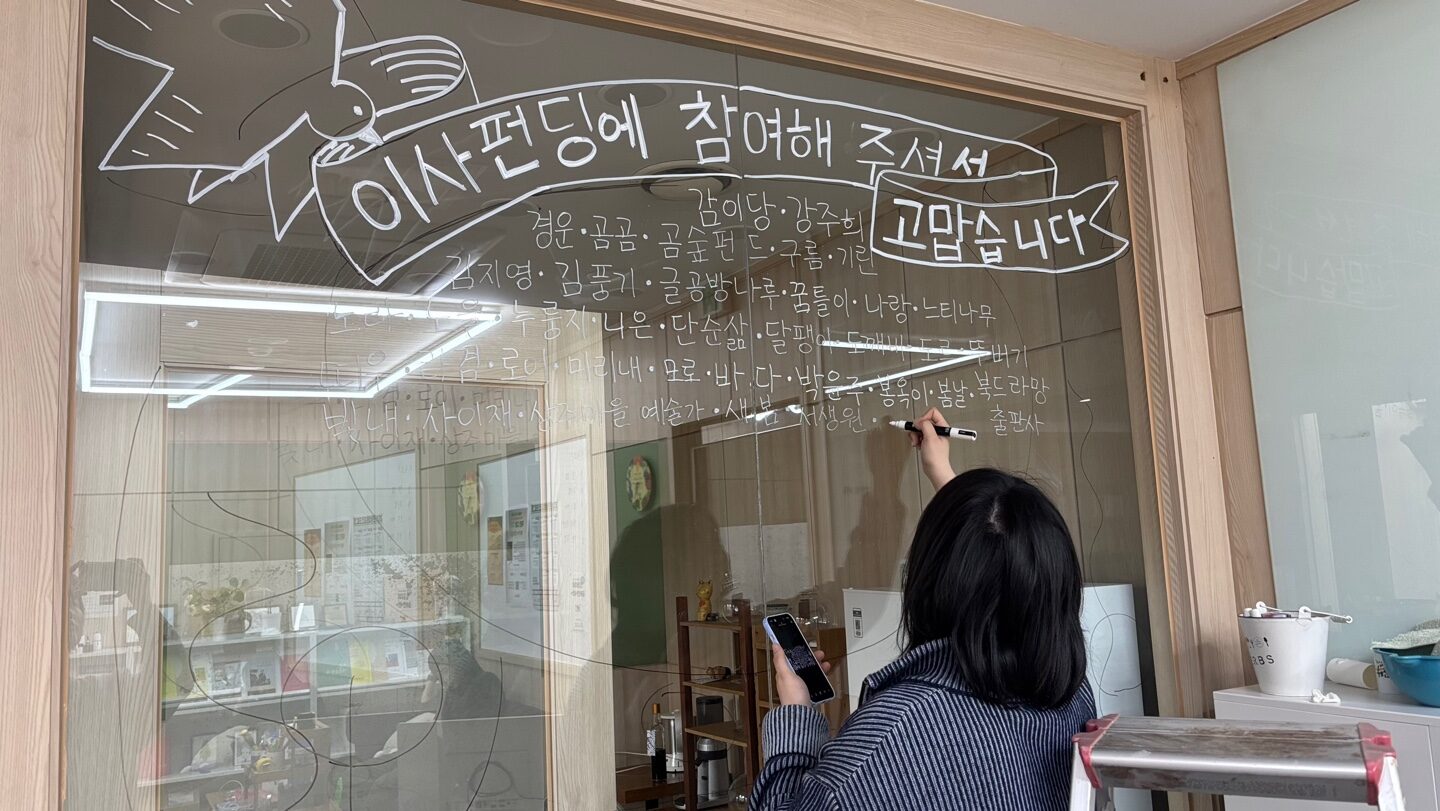 이사펀딩에 참여해 주셔서
고맙습니다
감이당·강주희
경운·곰곰·곰숲펀드·구름·기린
김지영·김풍기·글공방나루·꿈틀이·나랑·느티나무
누룽지·나은·단순삶·달팽이·도깨비·도로·뚜버기
로이·미리내·모로·바다·박윤주·봄옥이·봄날·북드라망
빛내·사이재·상주마을 예술가·새봄·서생원·
출판사